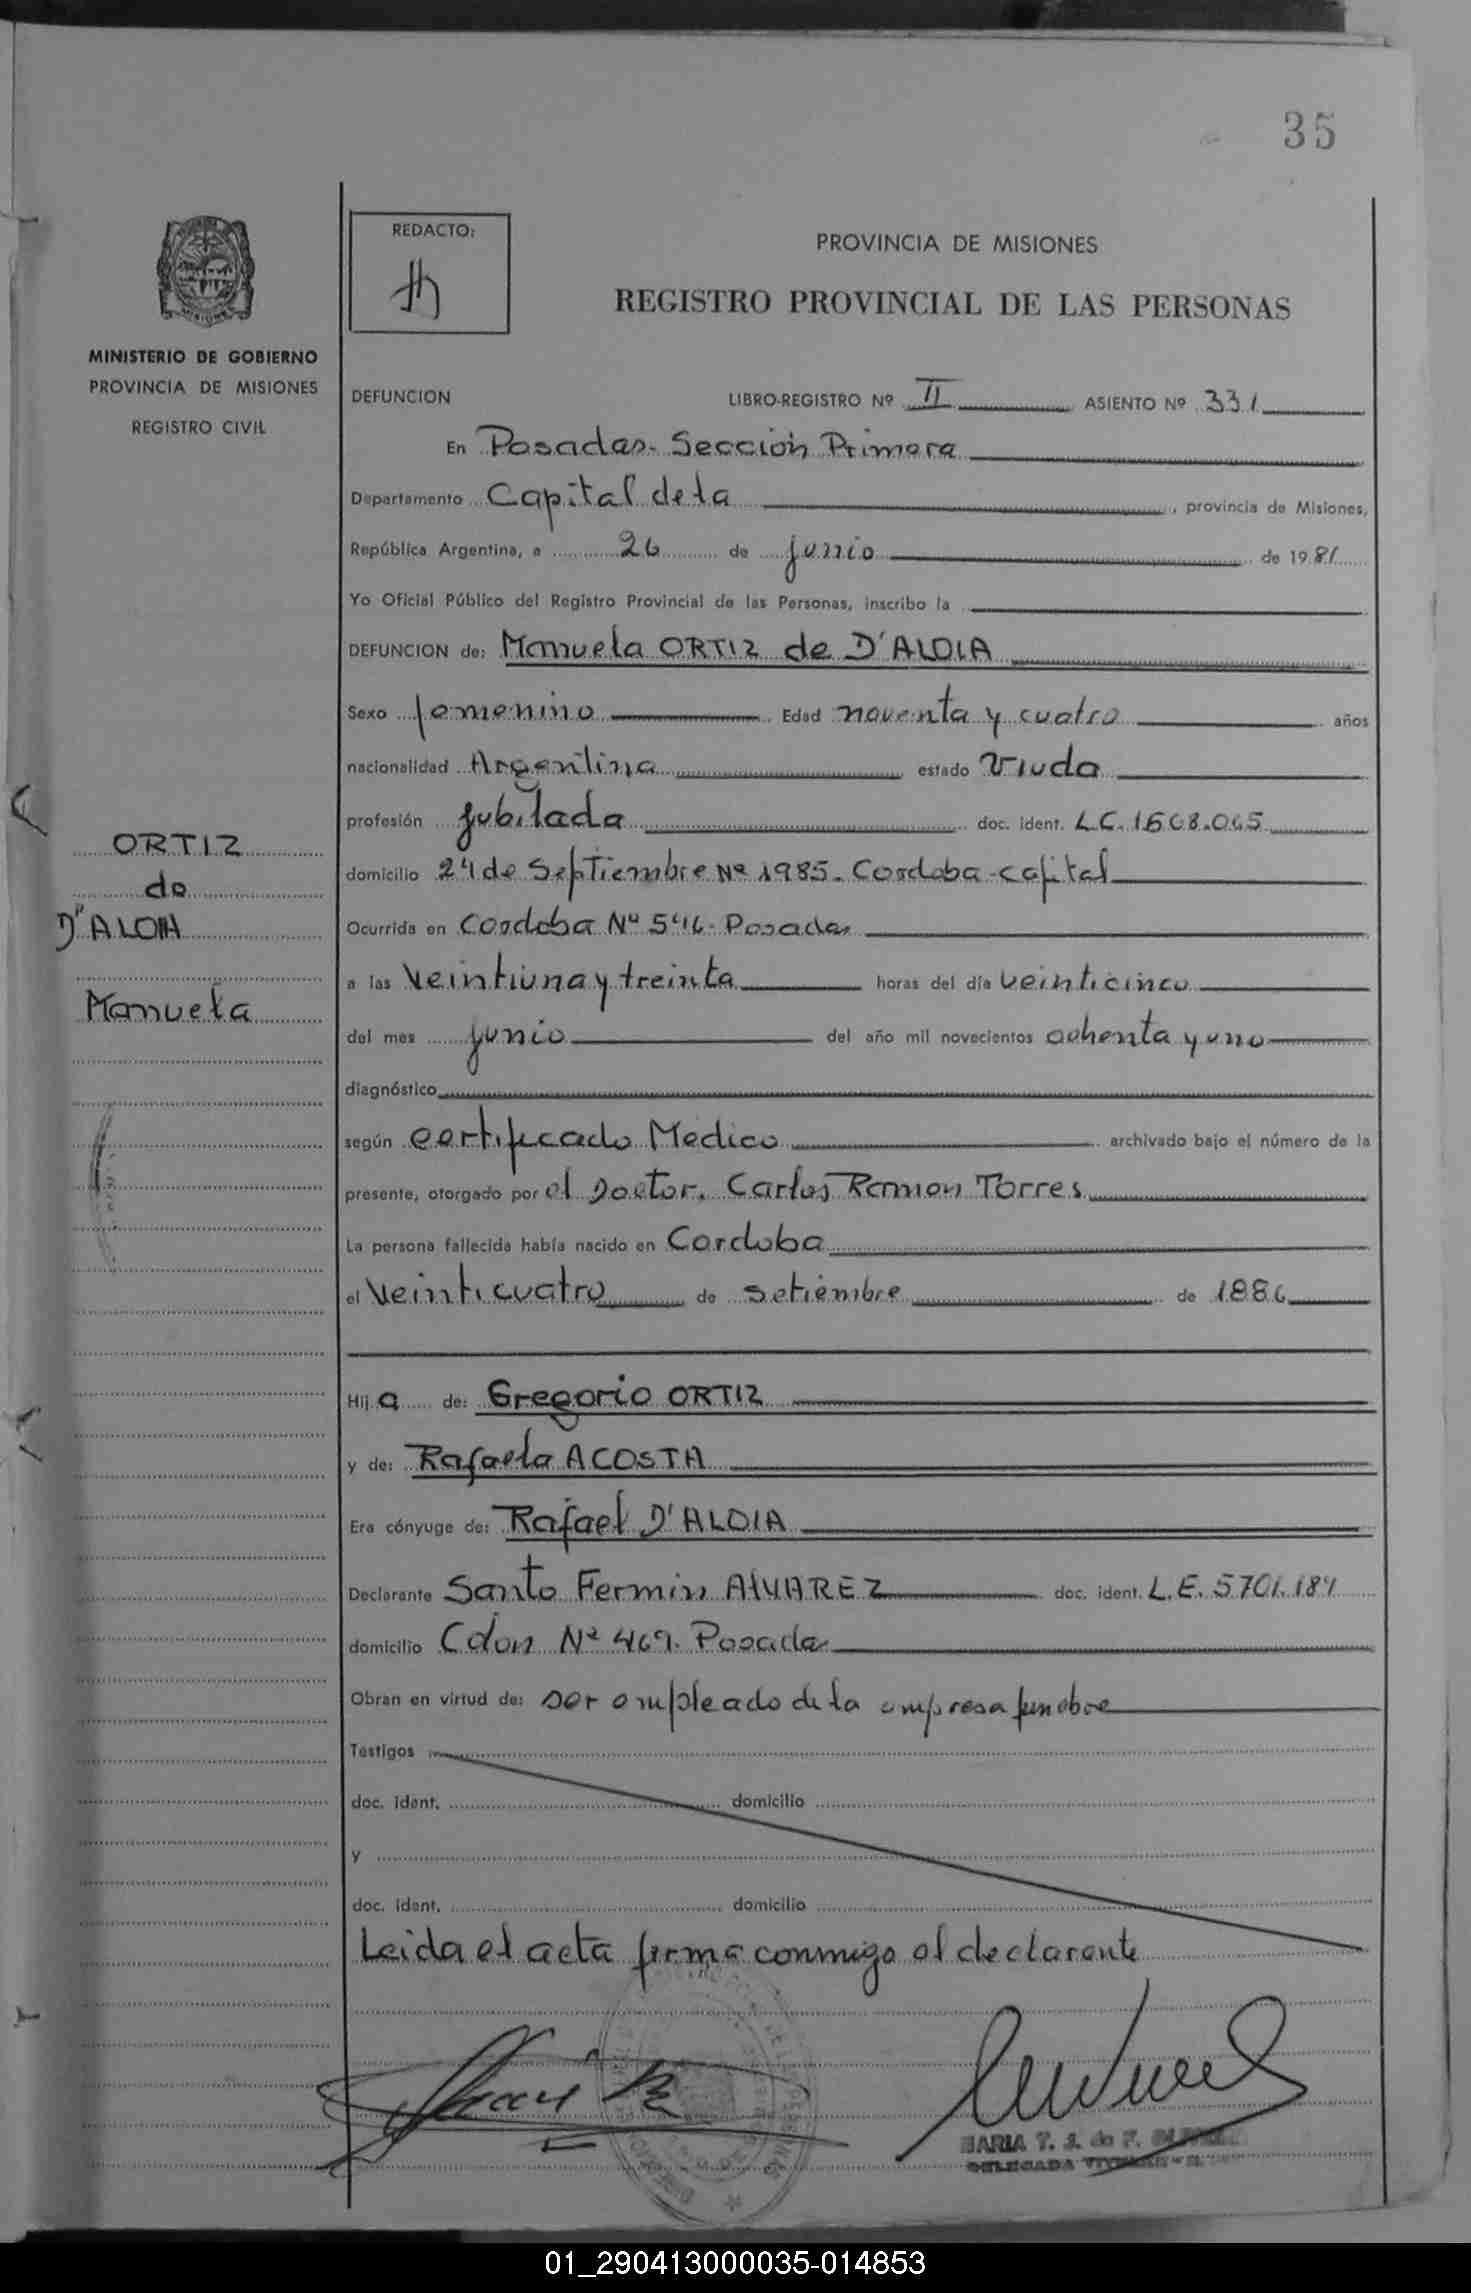 35
MINISTERIO DE GOBIERNO
PROVINCIA DE MISIONES
REGISTRO CIVIL
ORTIZ
de
D'ALOIA
Manuela
REDACTO:
PROVINCIA DE MISIONES
REGISTRO PROVINCIAL DE LAS PERSONAS
DEFUNCION LIBRO-REGISTRO Nº II ASIENTO Nº 331
En Posadas- Sección Primera
Departamento Capital de la, provincia de Misiones,
República Argentina, a 26 de junio de 1981
Yo Oficial Público del Registro Provincial de las Personas, inscribo la
DEFUNCION de: Manuela ORTIZ de D'ALOIA
Sexo femenino Edad noventa y cuatro años
nacionalidad Argentina estado Viuda
profesión jubilada doc. ident. L.C. 1.608.065
domicilio 24 de Septiembre Nº 1985. Cordoba-capital
Ocurrida en Cordoba Nº 546- Posadas
a las veintiuna y treinta horas del día veinticinco
del mes junio del año mil novecientos ochenta y uno
diagnóstico
según certificado Medico archivado bajo el número de la
presente, otorgado por el Doctor. Carlos Ramon Torres
La persona fallecida había nacido en Cordoba
el Veinticuatro de setiembre de 1886
Hij a de: Gregorio ORTIZ
y de: Rafaela ACOSTA
Era cónyuge de: Rafael D'ALOIA
Declarante Santo Fermin ALVAREZ doc. ident. L.E. 5701.184
domicilio Colon Nº 469. Posadas
Obran en virtud de: ser empleado de la empresa funebre
Testigos
doc. ident. domicilio
y
doc. ident. domicilio
Leida el acta firma conmigo el declarante
MARIA T. J. de F.
DELEGADA
01_290413000035-014853